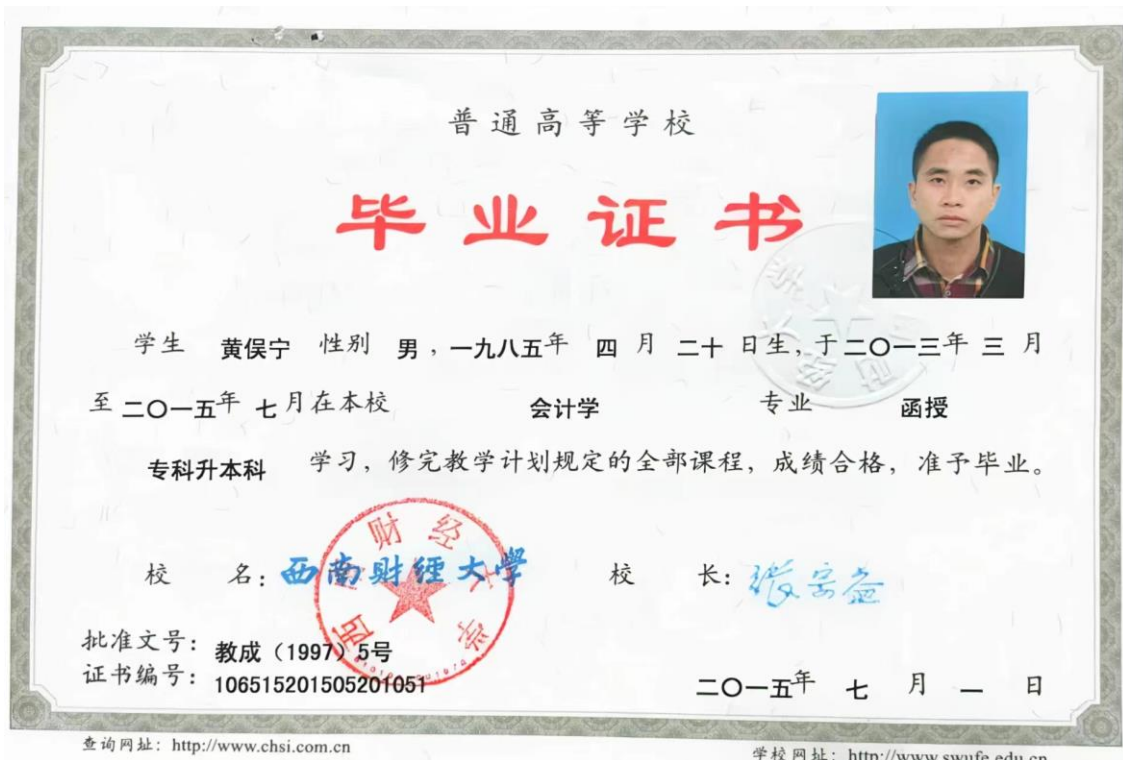 普通高等学校
毕业证书
学生 黄俣宁 性别 男，一九八五年 四 月 二十 日生，于二〇一三年 三 月
至 二〇一五年 七 月在本校 会计学 专业 函授
专科升本科 学习，修完教学计划规定的全部课程，成绩合格，准予毕业。
校 名：西南财经大学 校 长：张宗益
西南财经大学
批准文号：教成（1997）5号
证书编号：106515201505201051
二〇一五年 七 月 一 日
查询网址：http://www.chsi.com.cn
学校网址：http://www.swufe.edu.cn